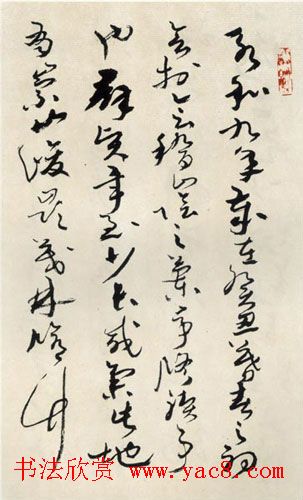 永和九年歲在癸丑暮春之初
會於會稽山陰之蘭亭脩禊事
也群賢畢至少長咸集此地
有崇山峻領茂林脩竹
书法欣赏 www.yac8.com